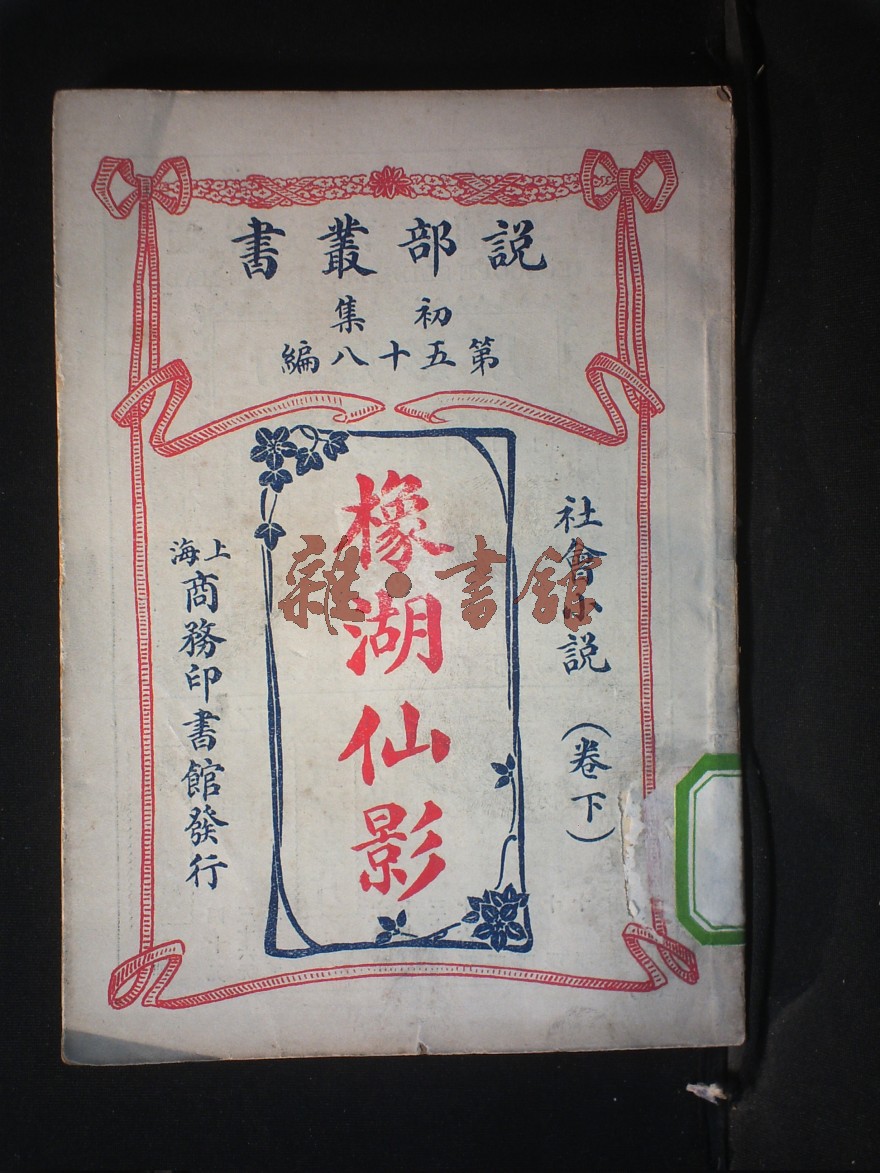 說部叢書
初集
第五十八編
社會小說（卷下）
橡湖仙影
上海商務印書館發行
雜·書館